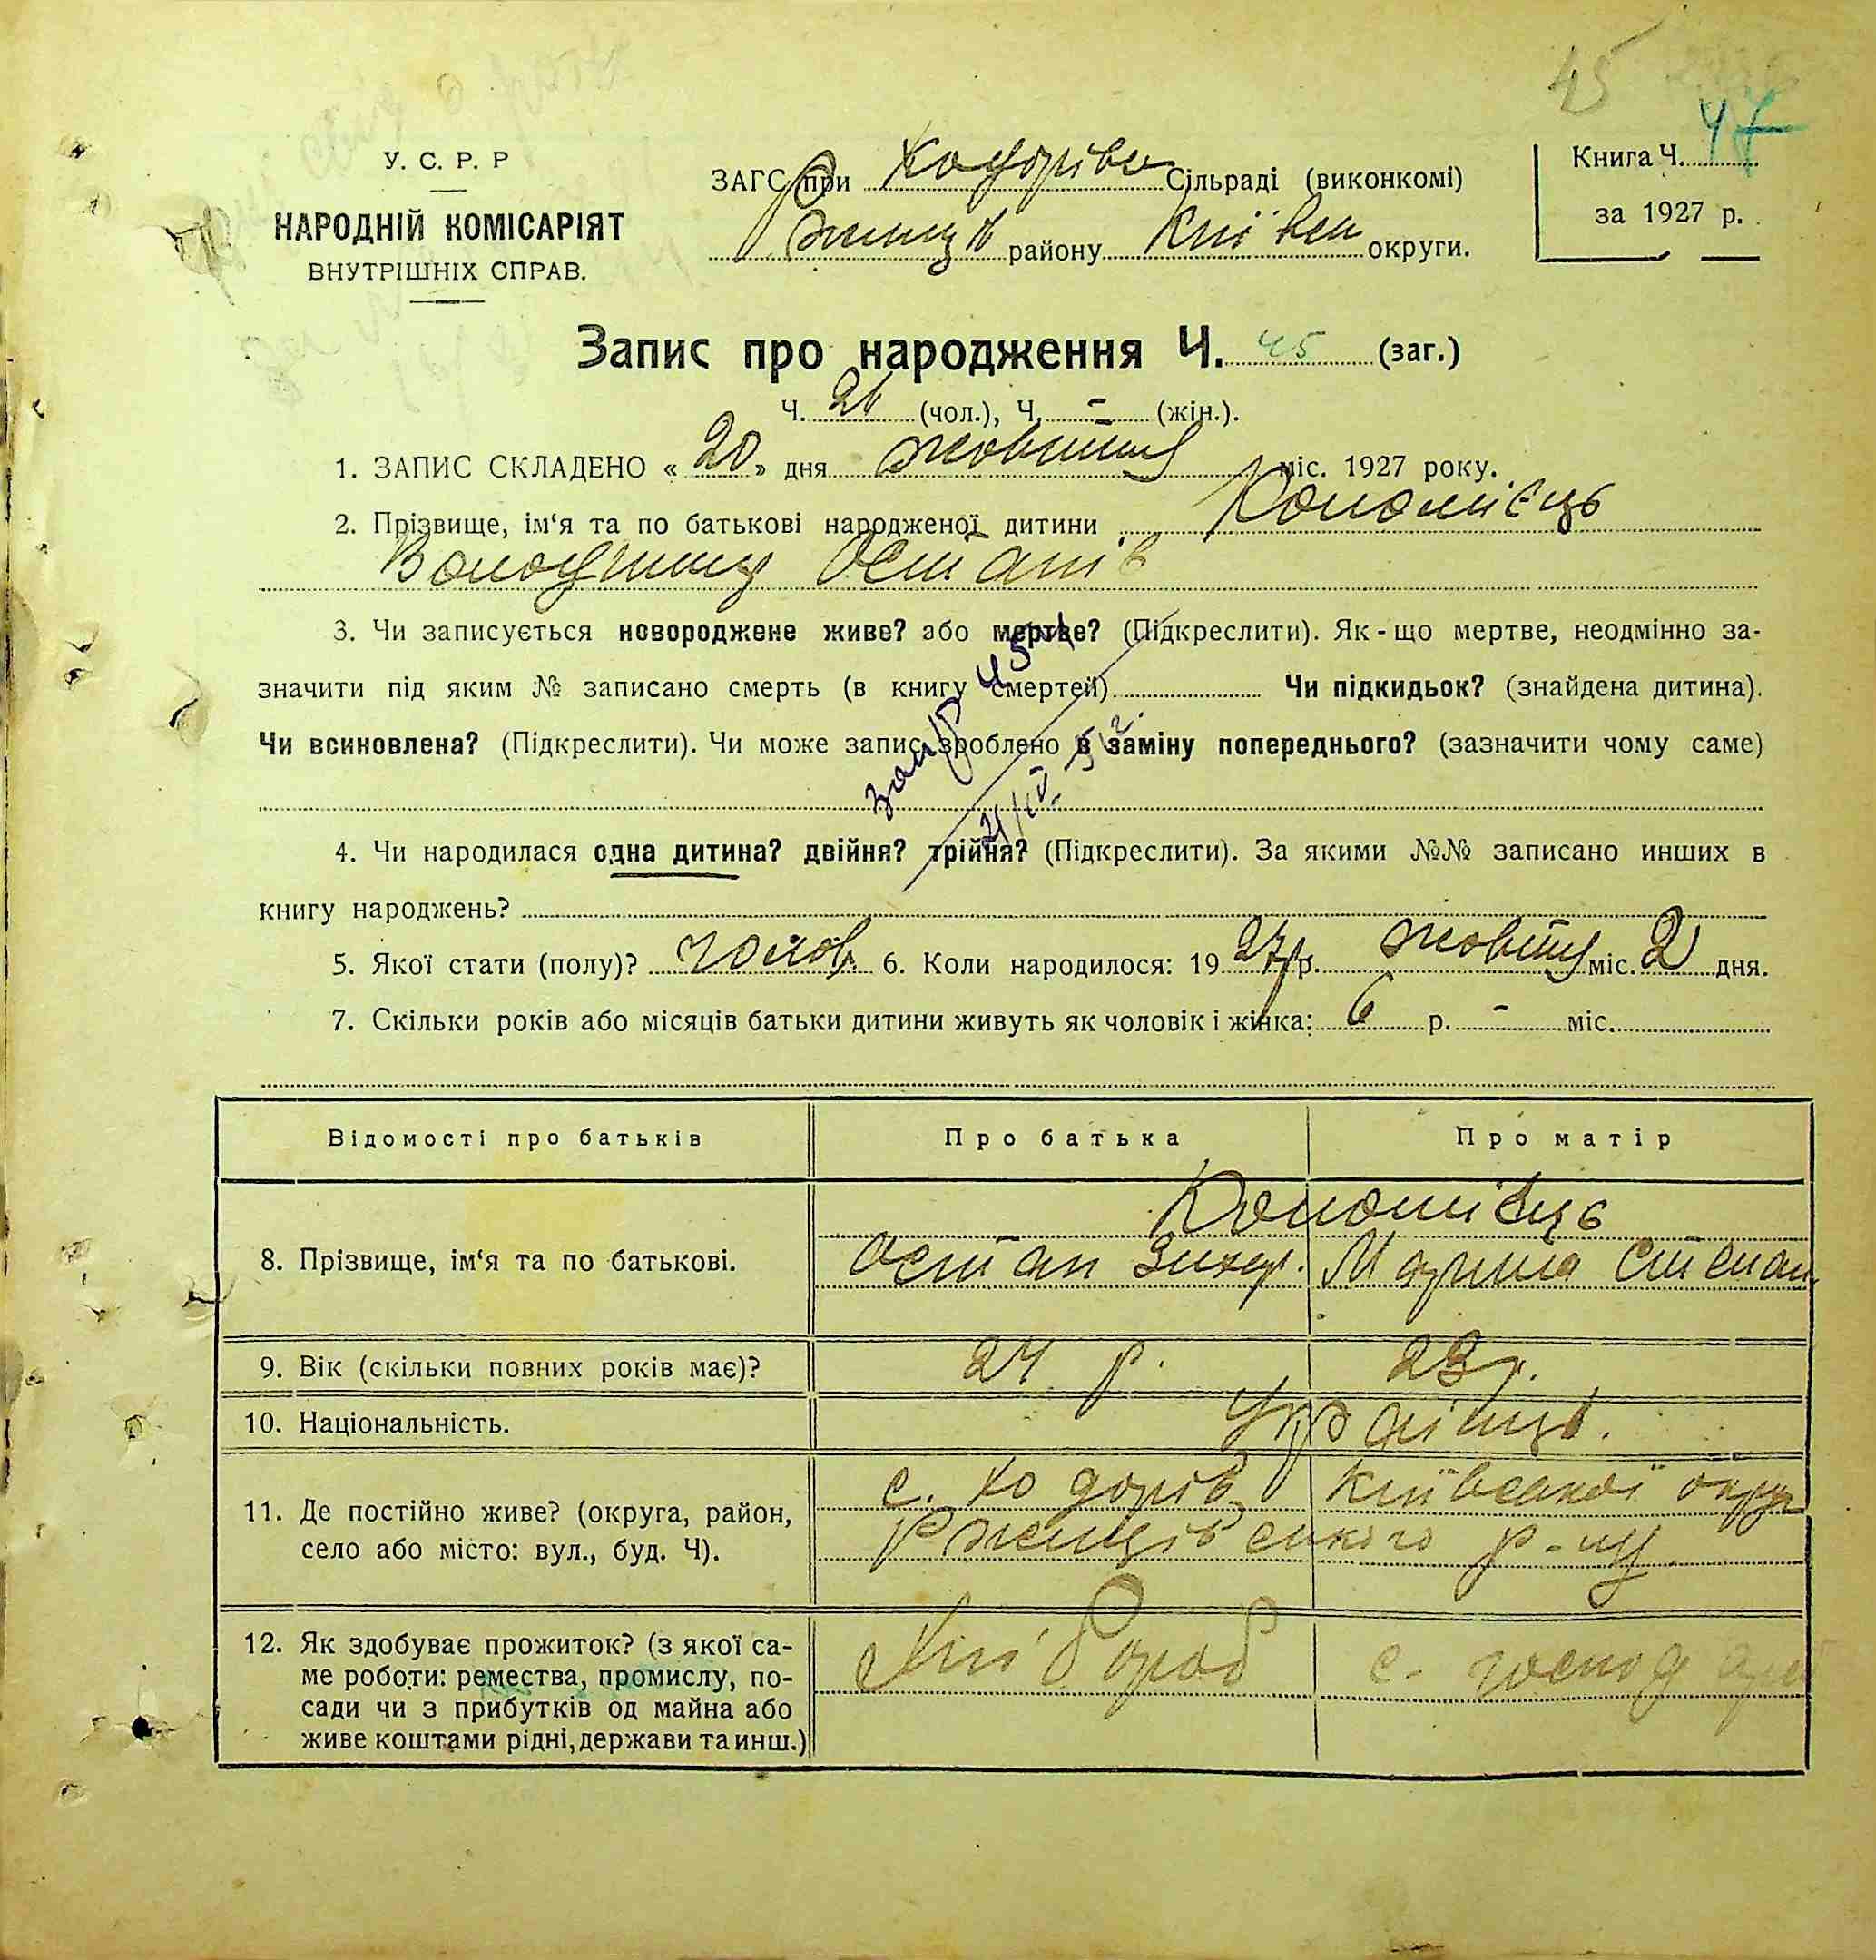 45
47
У. С. Р. Р
НАРОДНІЙ КОМІСАРІЯТ
ВНУТРІШНІХ СПРАВ.
ЗАГС при Ходорівс Сільраді (виконкомі)
Ржищів району Київськ округи.
Книга Ч.
за 1927 р.
Запис про народження Ч. 45 (заг.)
Ч. 26 (чол.), Ч. - (жін.).
1. ЗАПИС СКЛАДЕНО « 20 » дня жовтня міс. 1927 року.
2. Прізвище, ім‘я та по батькові народженої дитини Коломієць
Володимир Остапів
3. Чи записується новороджене живе? або мертве? (Підкреслити). Як-що мертве, неодмінно за-
значити під яким № записано смерть (в книгу смертей) Чи підкидьок? (знайдена дитина).
Чи всиновлена? (Підкреслити). Чи може запис зроблено в заміну попереднього? (зазначити чому саме)
4. Чи народилася одна дитина? двійня? трійня? (Підкреслити). За якими №№ записано инших в
книгу народжень?
5. Якої стати (полу)? чолов. 6. Коли народилося: 19 27 р. жовтня міс. 2 дня.
7. Скільки років або місяців батьки дитини живуть як чоловік і жінка: 6 р. - міс.
Відомості про батьків Про батька Про матір
Коломієць
8. Прізвище, ім‘я та по батькові. Остап Захар. Марина Степан.
9. Вік (скільки повних років має)? 24 р. 23 р.
10. Національність. Українці.
11. Де постійно живе? (округа, район,
село або місто: вул., буд. Ч).
с. Ходорів Київської округи
Ржищівського р-ну
12. Як здобуває прожиток? (з якої са-
ме роботи: ремества, промислу, по-
сади чи з прибутків од майна або
живе коштами рідні, держави та инш.)
Хлібороб с. господар